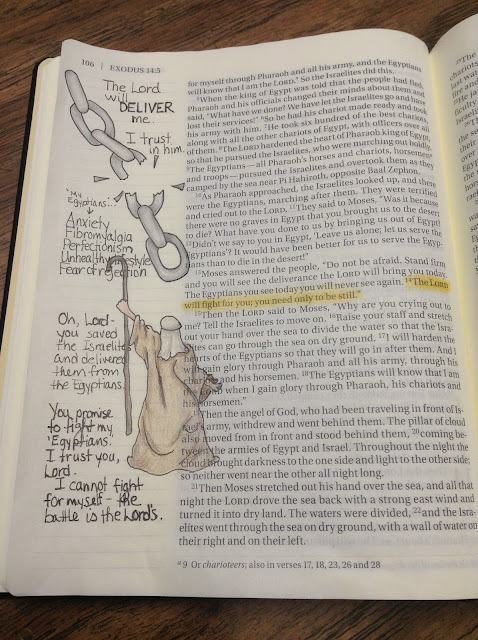 106 | EXODUS 14:5
The Lord
will
DELIVER
me.
I trust
in him.
"My
Egyptians"
Anxiety
Fibromyalgia
Perfectionism
Unhealthy lifestyle
Fear of rejection
Oh, Lord-
you saved
the Israelites
and delivered
them from
the Egyptians.
You promise
to fight my
"Egyptians."
I trust you,
Lord.
I cannot fight
for myself - the
battle is the Lord's.
for myself through Pharaoh and all his army, and the Egyptians
will know that I am the LORD." So the Israelites did this.
When the king of Egypt was told that the people had fled,
Pharaoh and his officials changed their minds about them and
said, "What have we done? We have let the Israelites go and have
lost their services!" So he had his chariot made ready and took
his army with him. He took six hundred of the best chariots,
along with all the other chariots of Egypt, with officers over all
of them. The LORD hardened the heart of Pharaoh king of Egypt,
so that he pursued the Israelites, who were marching out boldly.
The Egyptians—all Pharaoh's horses and chariots, horsemen
and troops—pursued the Israelites and overtook them as they
camped by the sea near Pi Hahiroth, opposite Baal Zephon.
As Pharaoh approached, the Israelites looked up, and there
were the Egyptians, marching after them. They were terrified
and cried out to the LORD. 11They said to Moses, "Was it because
there were no graves in Egypt that you brought us to the desert
to die? What have you done to us by bringing us out of Egypt?
12Didn't we say to you in Egypt, 'Leave us alone; let us serve the
Egyptians'? It would have been better for us to serve the Egyp-
tians than to die in the desert!"
13Moses answered the people, "Do not be afraid. Stand firm
and you will see the deliverance the LORD will bring you today.
The Egyptians you see today you will never see again. 14The LORD
will fight for you; you need only to be still."
15Then the LORD said to Moses, "Why are you crying out to
me? Tell the Israelites to move on. 16Raise your staff and stretch
out your hand over the sea to divide the water so that the Isra-
elites can go through the sea on dry ground. 17I will harden the
hearts of the Egyptians so that they will go in after them. And I
will gain glory through Pharaoh and all his army, through his
chariots and his horsemen. 18The Egyptians will know that I am
the LORD when I gain glory through Pharaoh, his chariots and
his horsemen."
Then the angel of God, who had been traveling in front of Is-
rael's army, withdrew and went behind them. The pillar of cloud
also moved from in front and stood behind them, 20coming be-
tween the armies of Egypt and Israel. Throughout the night the
cloud brought darkness to the one side and light to the other side;
so neither went near the other all night long.
21Then Moses stretched out his hand over the sea, and all that
night the LORD drove the sea back with a strong east wind and
turned it into dry land. The waters were divided, 22and the Isra-
elites went through the sea on dry ground, with a wall of water on
their right and on their left.
a 9 Or charioteers; also in verses 17, 18, 23, 26 and 28